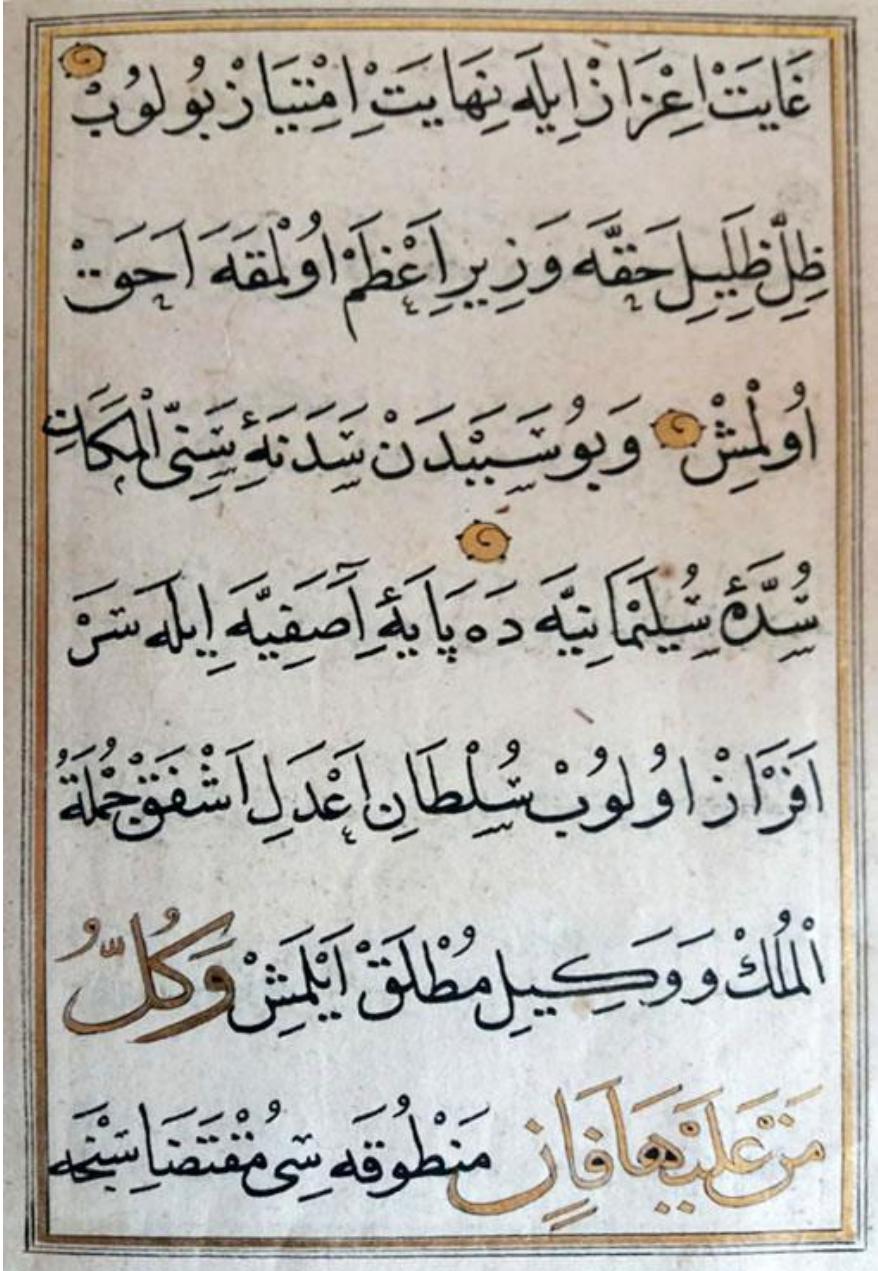 غَايَتْ اِعْزَازْ اِيلَه نِهَايَتِْ اِمْتِيَازْ بُولُوبْ
ظِلِّ ظَلِيلِ حَقَّه وَزِيرِ اَعْظَمْ اُولْمَقَه اَحَقْ
اُولْمِشْ وَبُو سَبَبْدَنْ سَدَنَهٔ سَنِىّ الْمَكَانِ
سُدَّهٔ سُلَيْمَانِيَّه دَه پَايَهٔ آصَفِيَّه اِيلَه سَرْ
اَفْرَازْ اُولُوبْ سُلْطَانِ اَعْدَلِ اَشْفَقْ جُمْلَةُ
الْمُلْكْ وَوَكِيلِ مُطْلَقْ اَيْلَمِشْ وَكُلُّ
مَنْ عَلَيْهَا فَانٍ مَنْطُوقَه سِى مُقْتَضَاسِنْجَه